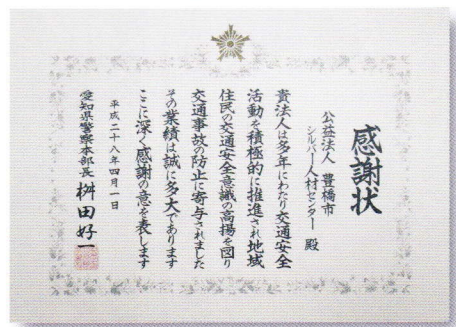 感謝状
公益法人 豊橋市
シルバー人材センター 殿
貴法人は多年にわたり交通安全
活動を積極的に推進され地域
住民の交通安全意識の高揚を図り
交通事故の防止に寄与されました
その業績は誠に多大であります
ここに深く感謝の意を表します
平成二十八年四月一日
愛知県警察本部長 桝田好一